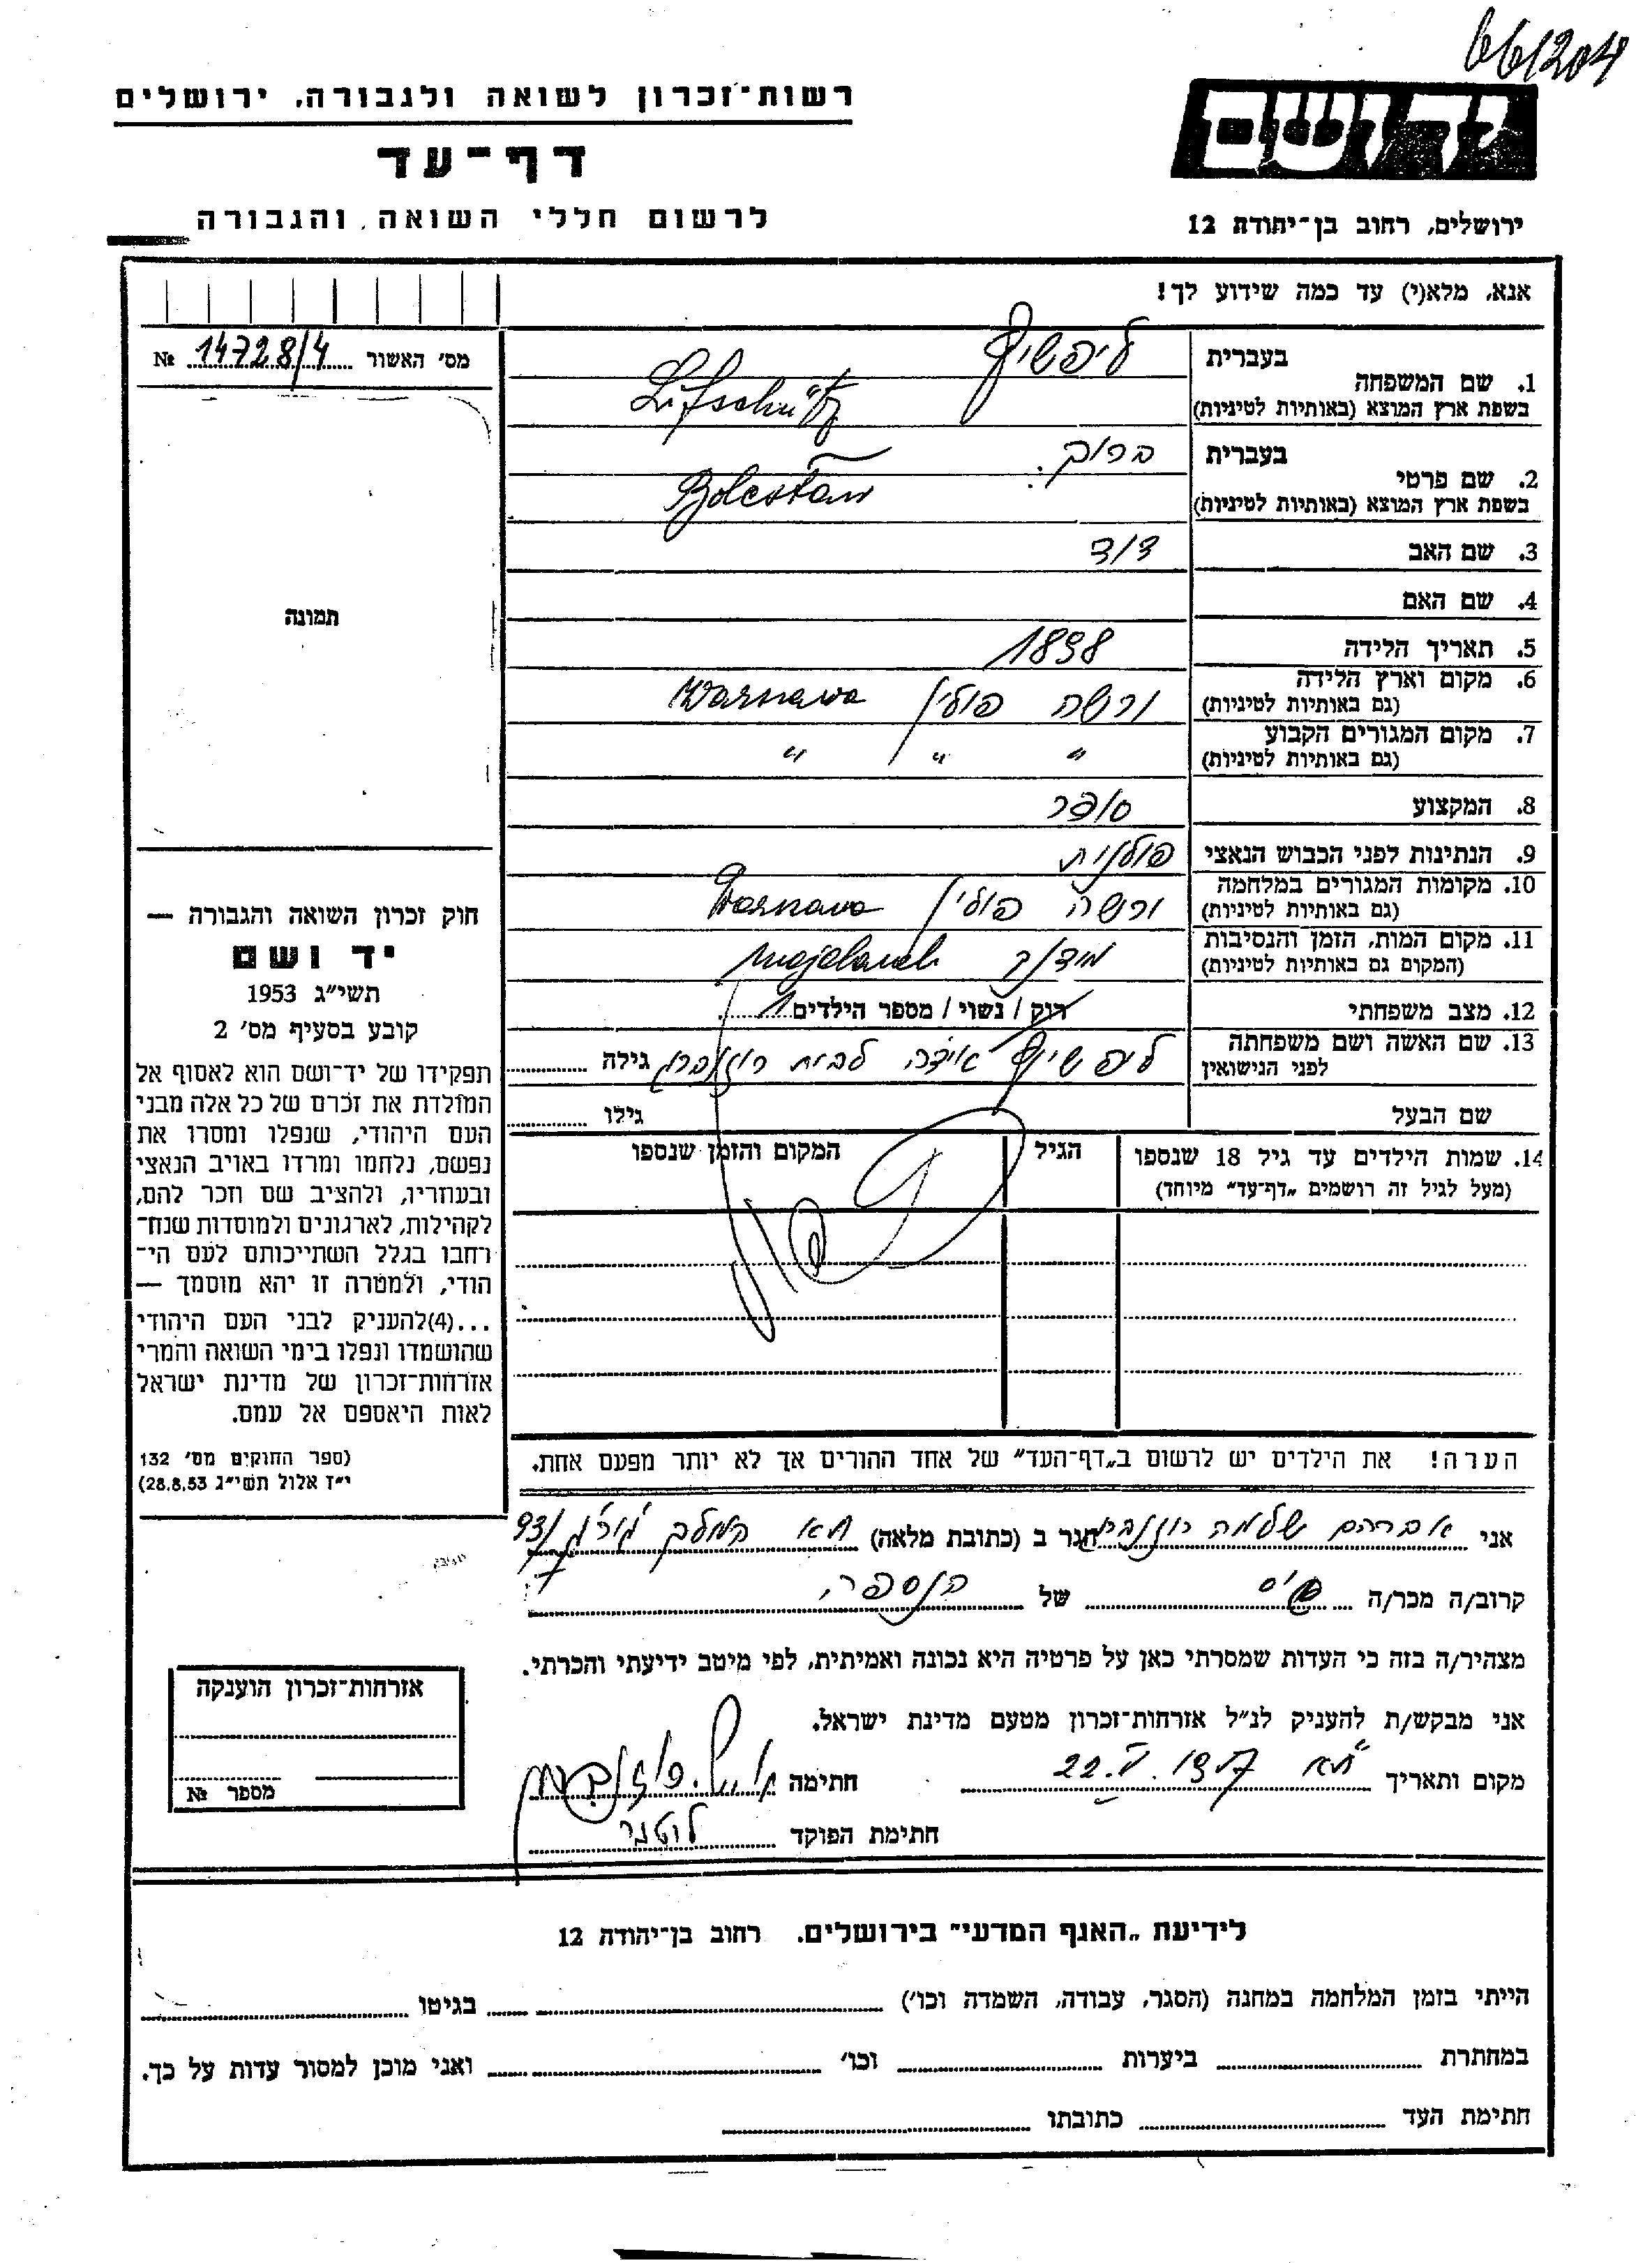 66/204
רשות־זכרון לשואה ולגבורה, ירושלים
ידושם
דף־עד
לרשום חללי השואה והגבורה
ירושלים, רחוב בן־יהודה 12
אנא, מלא(י) עד כמה שידוע לך!
מס׳ האשור 14728/4 №
1. שם המשפחה בעברית ליפשיץ
בשפת ארץ המוצא (באותיות לטיניות) Lifschütz
2. שם פרטי בעברית ברוך
בשפת ארץ המוצא (באותיות לטיניות) Bolesław
3. שם האב דוד
4. שם האם
5. תאריך הלידה 1898
6. מקום וארץ הלידה (גם באותיות לטיניות) ורשה פולין / Warszawa
7. מקום המגורים הקבוע (גם באותיות לטיניות) " " / "
8. המקצוע סופר
9. הנתינות לפני הכבוש הנאצי פולנית
10. מקומות המגורים במלחמה (גם באותיות לטיניות) ורשה פולין / Warszawa
11. מקום המות, הזמן והנסיבות (המקום גם באותיות לטיניות) מידנק Majdanek
12. מצב משפחתי רווק / נשוי / מספר הילדים 1
13. שם האשה ושם משפחתה לפני הנישואין ליפשיץ אידה לבית רוזנברג גילה
שם הבעל גילו
14. שמות הילדים עד גיל 18 שנספו הגיל המקום והזמן שנספו
(מעל לגיל זה רושמים „דף־עד" מיוחד)
תמונה
חוק זכרון השואה והגבורה —
יד ושם
תשי״ג 1953
קובע בסעיף מס׳ 2
תפקידו של יד־ושם הוא לאסוף אל
המולדת את זכרם של כל אלה מבני
העם היהודי, שנפלו ומסרו את
נפשם, נלחמו ומרדו באויב הנאצי
ובעוזריו, ולהציב שם וזכר להם,
לקהילות, לארגונים ולמוסדות שנח־
רחבו בגלל השתייכותם לעם הי־
הודי, ולמטרה זו יהא מוסמך —
...(4)להעניק לבני העם היהודי
שהושמדו ונפלו בימי השואה והמרי
אזרחות־זכרון של מדינת ישראל
לאות היאספם אל עמם.
(ספר החוקים מס׳ 132
י״ז אלול תשי״ג 28.8.53)
הערה! את הילדים יש לרשום ב„דף־העד" של אחד ההורים אך לא יותר מפעם אחת.
אני אברהם שלמה רוזנברג הגר ב (כתובת מלאה) תא 93/
קרוב/ה מכר/ה גיס של הנספה
מצהיר/ה בזה כי העדות שמסרתי כאן על פרטיה היא נכונה ואמיתית, לפי מיטב ידיעתי והכרתי.
אני מבקש/ת להעניק לנ״ל אזרחות־זכרון מטעם מדינת ישראל.
מקום ותאריך ת״א 22.V.1957 חתימה א. ש. רוזנברג
חתימת הפוקד
אזרחות־זכרון הוענקה
מספר №
לידיעת „האגף המדעי" בירושלים. רחוב בן־יהודה 12
הייתי בזמן המלחמה במחנה (הסגר, עבודה, השמדה וכו׳) בגיטו
במחתרת ביערות וכו׳ ואני מוכן למסור עדות על כך.
חתימת העד כתובתו